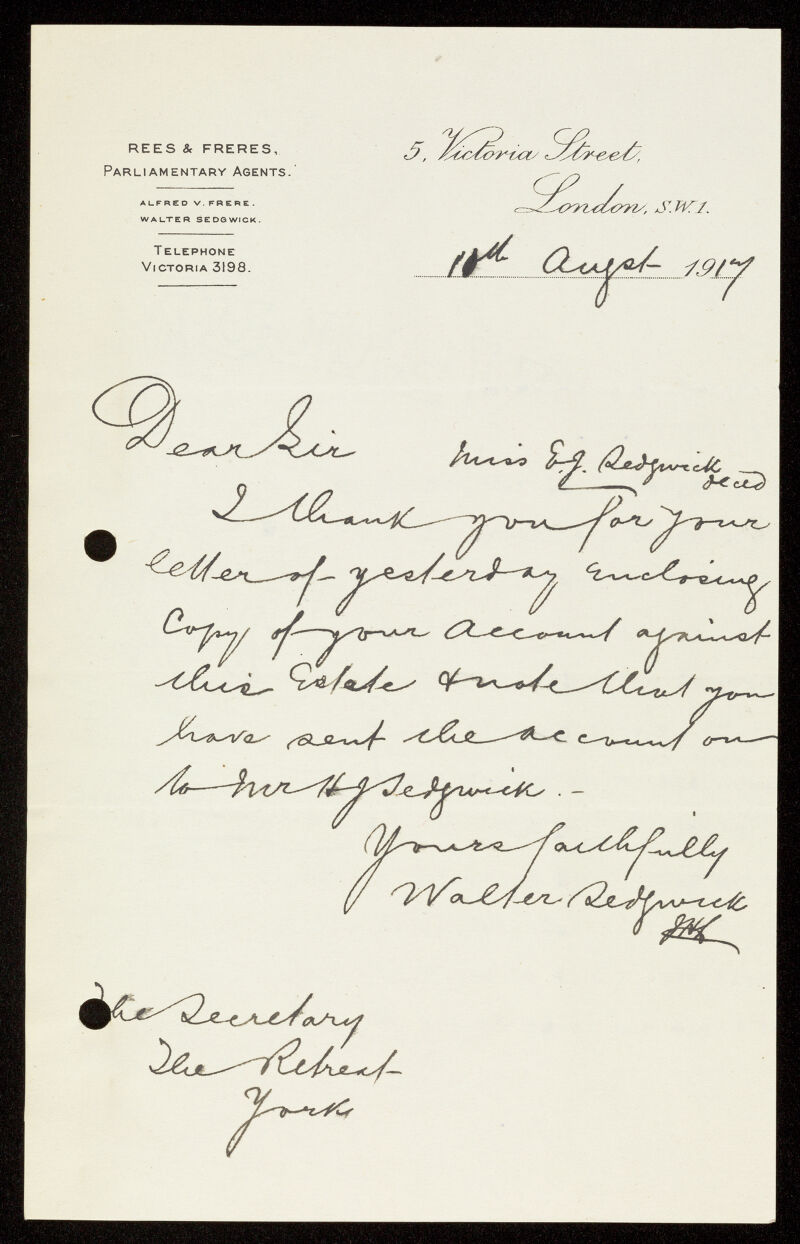 REES & FRERES,
PARLIAMENTARY AGENTS.
ALFRED V. FRERE.
WALTER SEDGWICK.
TELEPHONE
VICTORIA 3198.
5, Victoria Street,
London, S.W.1.
10th Augst 1917
Dear Sir
Miss E.J. Sedgwick
deced
I thank you for your
letter of yesterday enclosing
Copy of your account against
this Estate & note that you
have sent the account on
to Mr H J Sedgwick. -
Yours faithfully
Walter Sedgwick
The Secretary
The Retreat
York